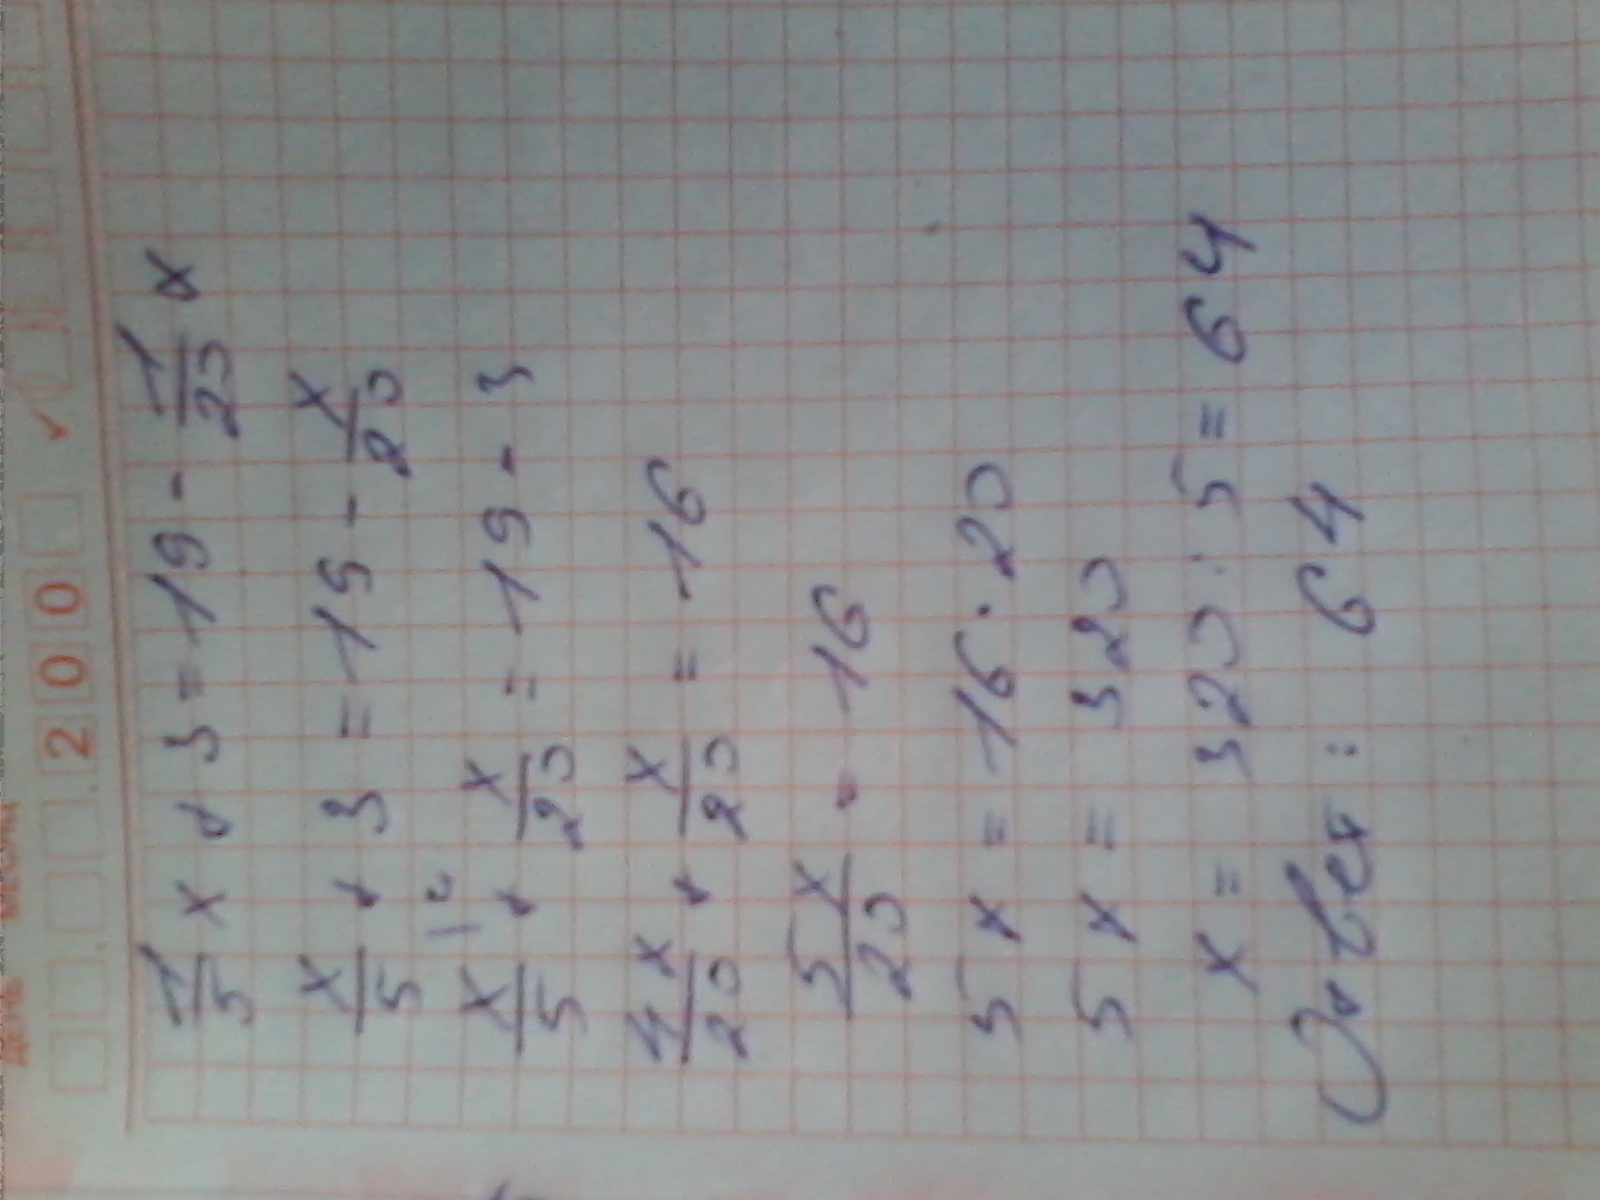 200
1/5 x + 3 = 19 - 1/20 x
x/5 + 3 = 19 - x/20
x/5 + x/20 = 19 - 3
4x/20 + x/20 = 16
5x/20 = 16
5x = 16 · 20
5x = 320
x = 320 : 5 = 64
Ответ : 64